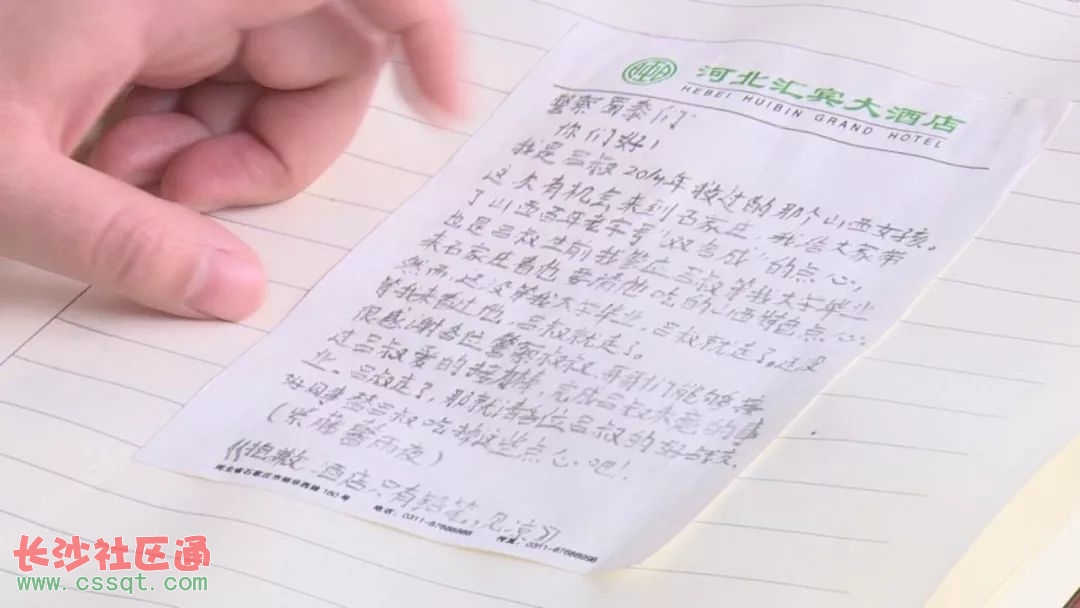 河北汇宾大酒店
HEBEI HUIBIN GRAND HOTEL
警察蜀黍们
你们好!
我是三叔2014年救过的那个山西女孩。
这次有机会来到石家庄,我给大家带
了山西百年老字号“双合成”的点心,
也是三叔生前我答应三叔等我大学毕业
来石家庄看他要请他吃的山西特色点心.
然而,还没等我大学毕业,三叔就走了。还没
等我来谢过他,三叔就走了。
很感谢各位警察叔叔、哥哥们能够接
过三叔爱的接力棒,完成三叔未竟的事
业、三叔走了,那就请各位三叔的好战友
好同事替三叔吃掉这些点心吧!
(紫藤蕾雨夜)
《抱歉.酒店只有铅笔,见谅》
河北省石家庄市裕华西路150号
电话:0311-87666888 传真:0311-87668998
长沙社区通
www.cssqt.com